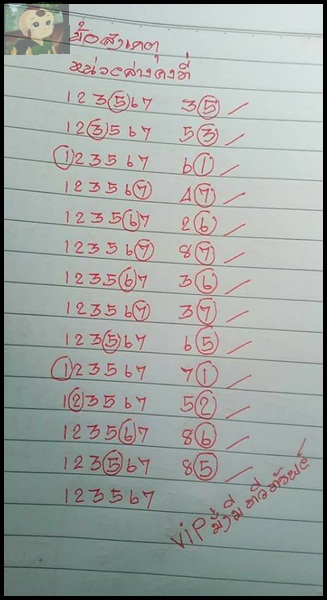 ข้อสังเกตุ
หน่วยล่างคงที่
123567 35
123567 53
123567 61
123567 47
123567 26
123567 87
123567 36
123567 37
123567 65
123567 71
123567 52
123567 86
123567 85
123567
VIP มั่งมี ทวีทรัพย์